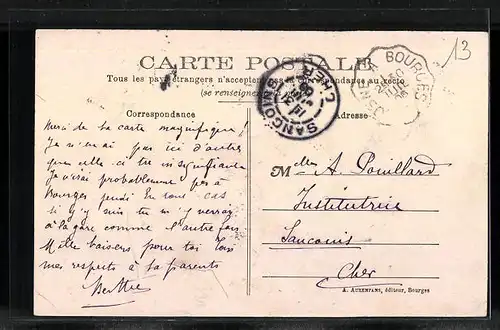 13
CARTE POSTALE
Tous les pays étrangers n'acceptent la correspondance au recto
(se renseigner
Correspondance
Adresse
BOURGES
SANCOINS
CHER
Merci de la carte magnifique,
Je n'ai pas ici d'autre
que celle ci très insignifiante
J'irai probablement pas à
Bourges jeudi En tous cas
si j'y suis tu m'y verrais
à la gare comme l'autre fois
Mille baisers pour toi tous
mes respects à ta parents
Berthe
Melle A. Pouillard
Institutrice
Sancoins
Cher
A. AUXENFANS, éditeur, Bourges